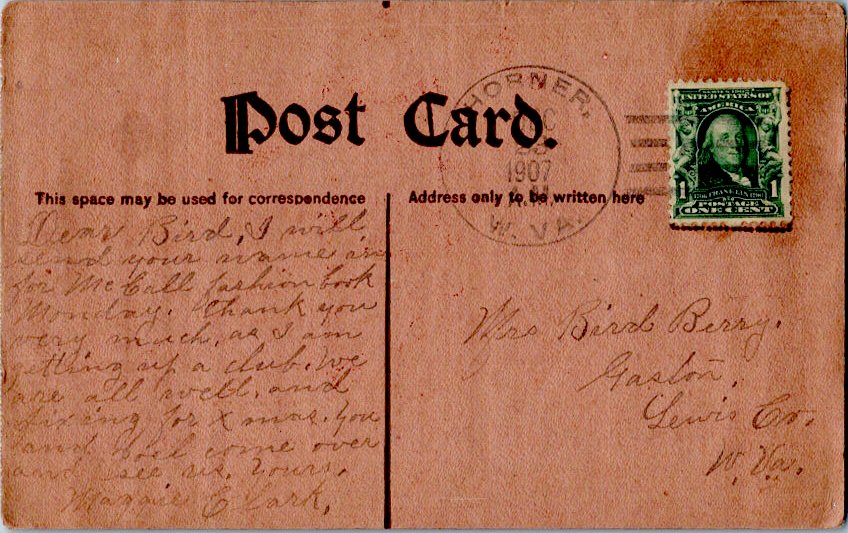 Post Card.
HORNER,
1907
W. VA.
SERIES 1902
UNITED STATES OF
AMERICA
1 FRANKLIN 1
POSTAGE
ONE CENT
This space may be used for correspondence
Dear Bird, I will
send your name in
for McCall fashion book
Monday. thank you
very much, as I am
getting up a club. We
are all well, and
fixing for X mas. You
and come over
and see us. Yours,
Maggie Clark,
Address only to be written here
Mrs Bird Berry.
Gaston,
Lewis Co.
W. Va.